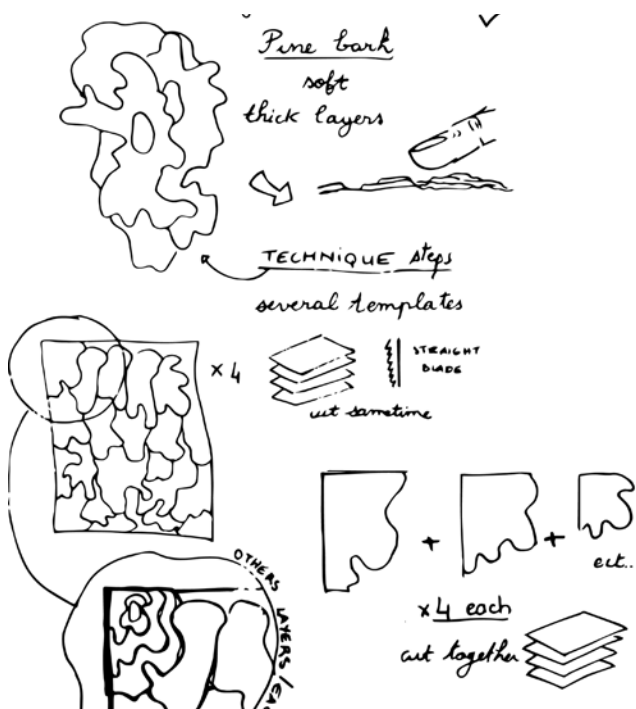 Pine bark
soft
thick layers
TECHNIQUE steps
several templates
×4
STRAIGHT
BLADE
cut sametime
+ + ect..
×4 each
cut together
OTHERS LAYERS/